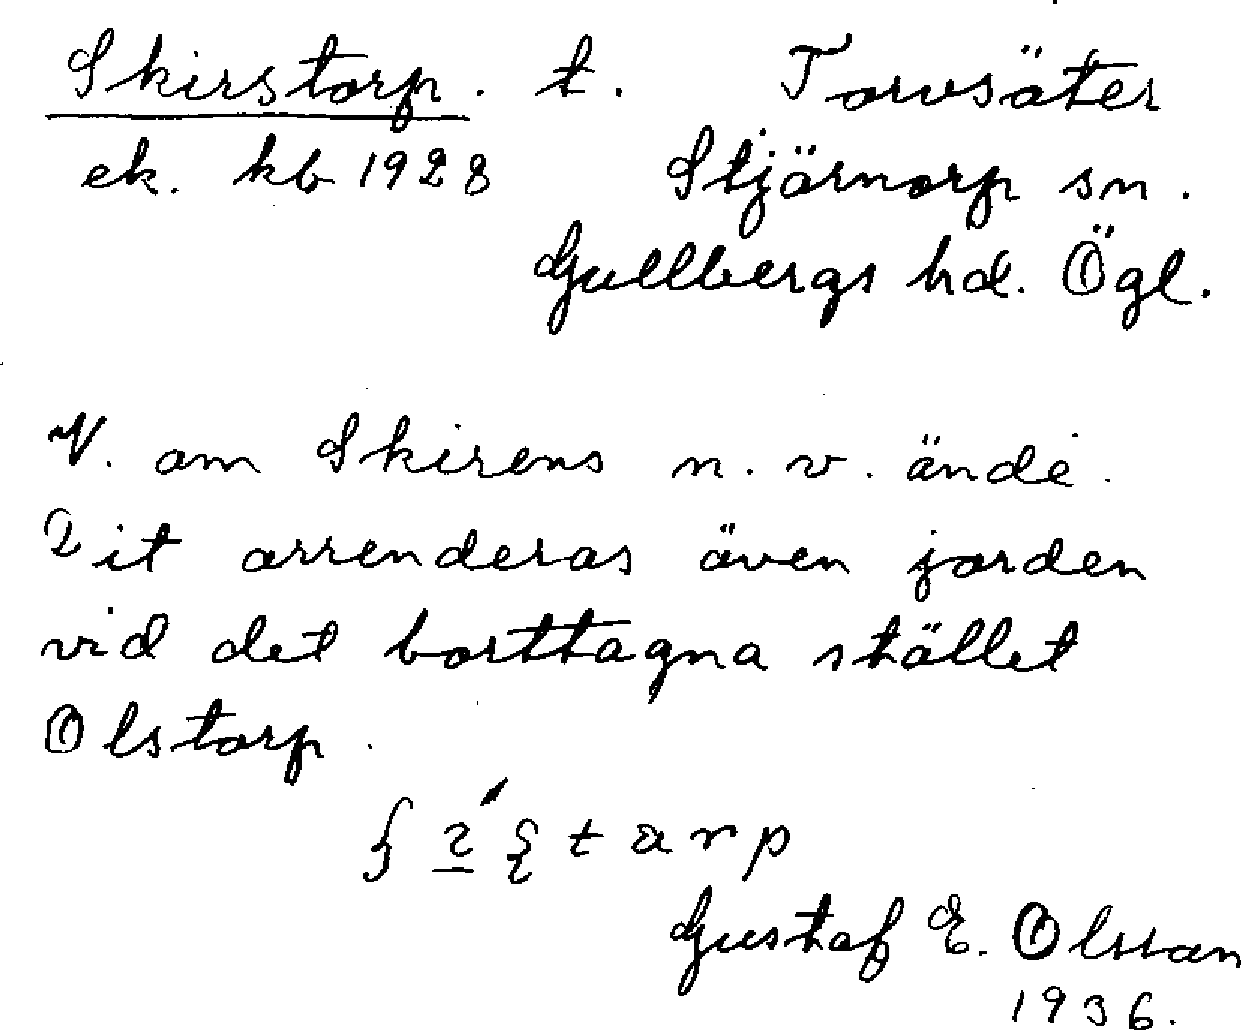 Skirstorp. t. Torvsäter
ek. kb 1928 Stjärnorp sn.
Gullbergs hd. Ögl.
V. om Skirens n. v. ände.
Dit arrenderas även jorden
vid det borttagna stället
Olstorp.
Gustaf E. Olsson
1936.